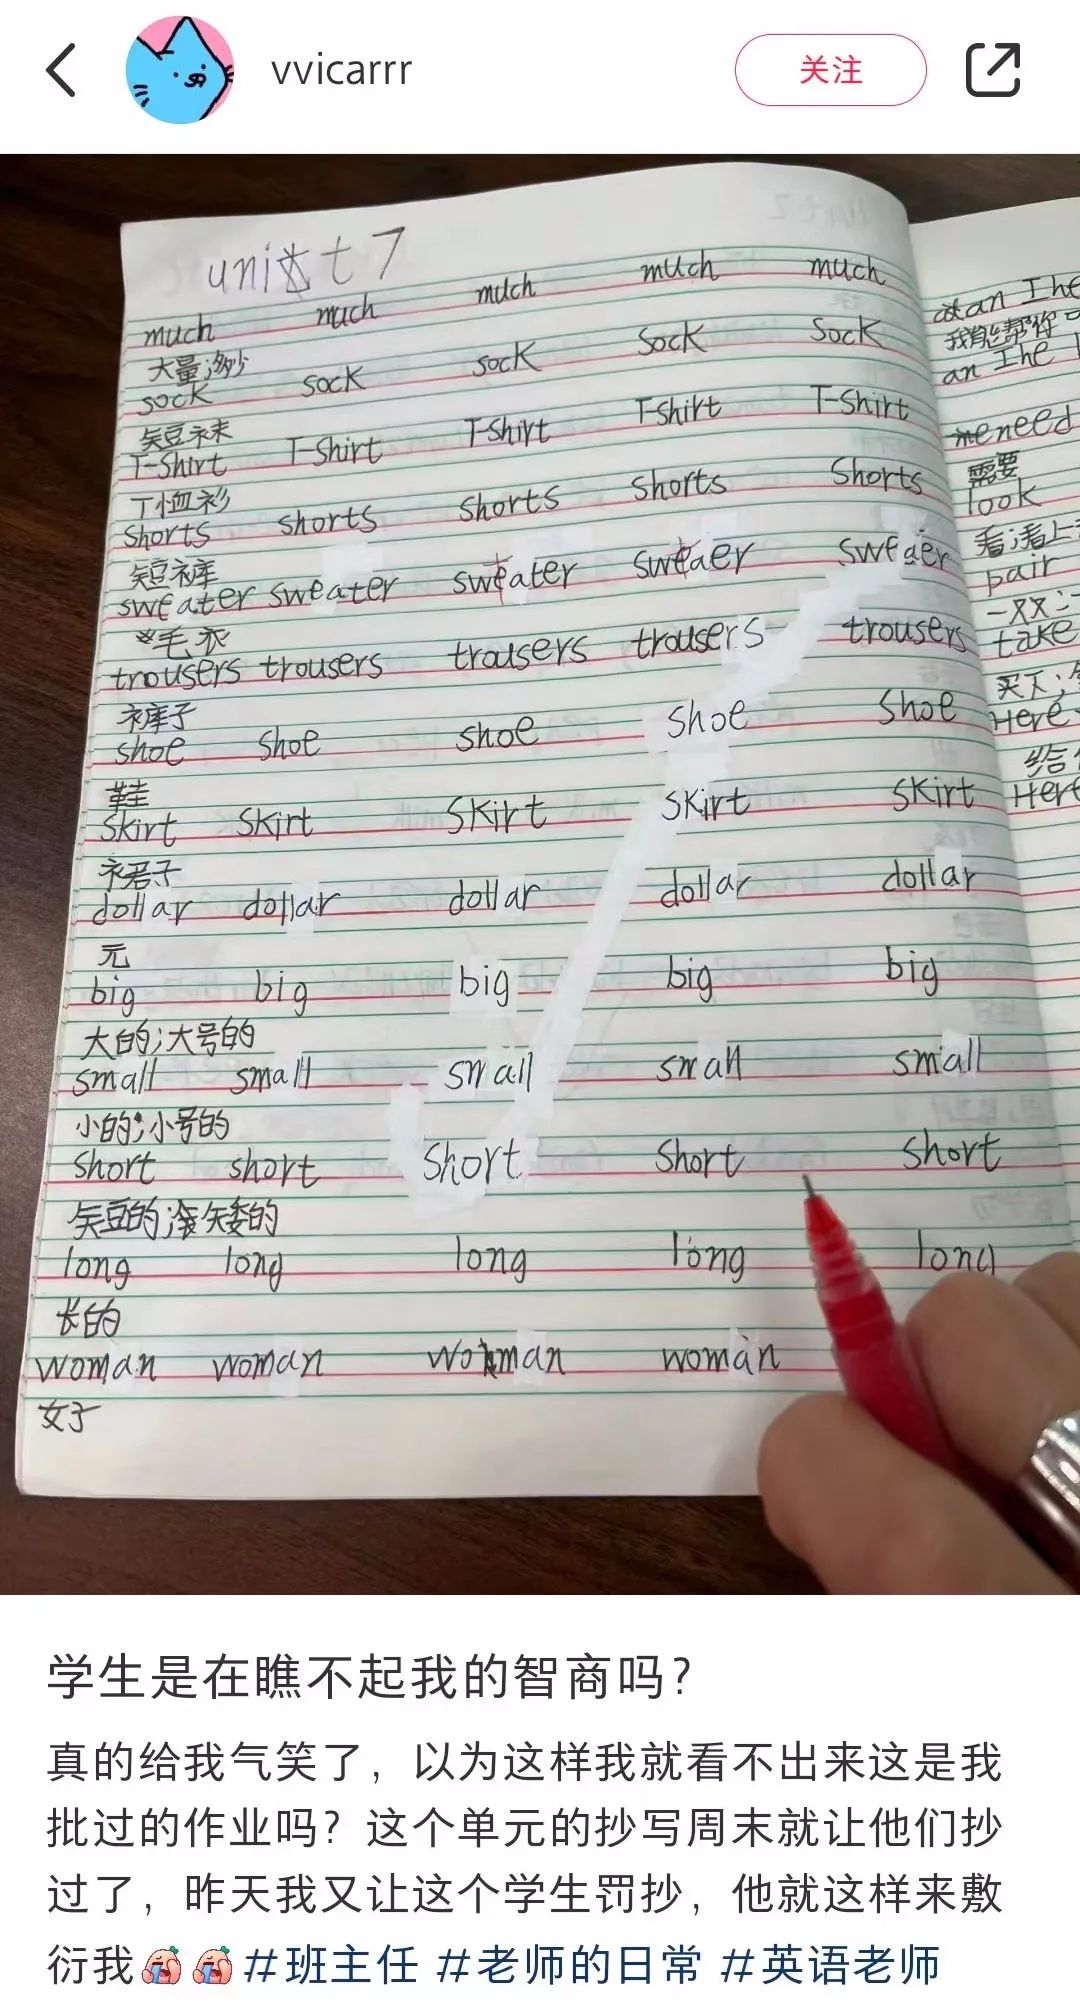 vvicarrr
关注
unit 7
much much much much much
大量;多少
sock sock sock sock sock
短袜
T-shirt T-shirt T-shirt T-shirt T-shirt
T恤衫
shorts shorts shorts shorts shorts
短裤
sweater sweater sweater sweaer sweaer
毛衣
trousers trousers trousers trousers trousers
裤子
shoe shoe shoe shoe shoe
鞋
skirt skirt skirt skirt skirt
裙子
dollar dollar dollar dollar dollar
元
big big big big big
大的;大号的
small small small small small
小的;小号的
short short short short short
短的;矮的
long long long long long
长的
woman woman woman woman
女子
我能帮你
an The
need
需要
look
看;看上
pair
一双;
take
买下;
Here
给
Here
学生是在瞧不起我的智商吗?
真的给我气笑了，以为这样我就看不出来这是我
批过的作业吗? 这个单元的抄写周末就让他们抄
过了，昨天我又让这个学生罚抄，他就这样来敷
衍我 #班主任 #老师的日常 #英语老师